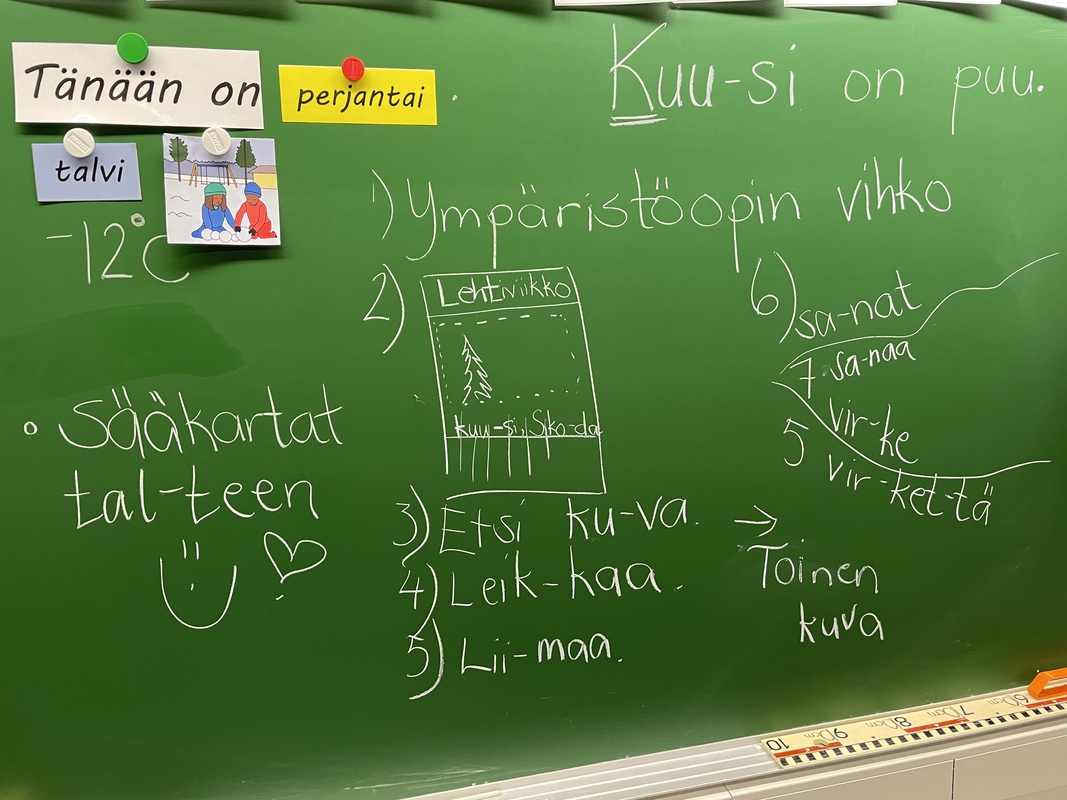 Tänään on perjantai
talvi
-12°C
• Sääkartat
tal-teen
Kuu-si on puu.
1) Ympäristöopin vihko
2)
Lehtiviikko
3) Etsi ku-va.
4) Leik-kaa.
5) Lii-maa.
→
Toinen
kuva
6) sa-nat
7 sa-naa
vir-ke
5 vir-ket-tä
10 9 8 7 6